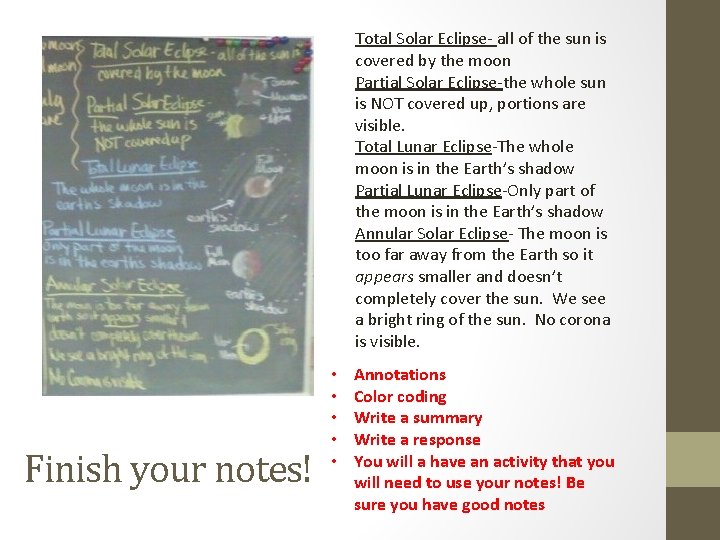 e moons
moon
Total Solar Eclipse- all of the sun is
covered by the moon
Partial Solar Eclipse-
the whole sun is
NOT covered up
Total Lunar Eclipse
The whole moon is in the
earths shadow
Full
Moon
earth's
shadow
Partial Lunar Eclipse
Only part of the moon
is in the earths shadow
Full
Moon
earth's
shadow
Annular Solar Eclipse
The moon is too far away from
earth so it appears smaller &
doesn't completely cover the sun.
We see a bright ring of the sun.
No Corona is visible
Total Solar Eclipse- all of the sun is
covered by the moon
Partial Solar Eclipse-the whole sun
is NOT covered up, portions are
visible.
Total Lunar Eclipse-The whole
moon is in the Earth’s shadow
Partial Lunar Eclipse-Only part of
the moon is in the Earth’s shadow
Annular Solar Eclipse- The moon is
too far away from the Earth so it
appears smaller and doesn’t
completely cover the sun. We see
a bright ring of the sun. No corona
is visible.
• Annotations
• Color coding
• Write a summary
• Write a response
• You will a have an activity that you
will need to use your notes! Be
sure you have good notes
Finish your notes!